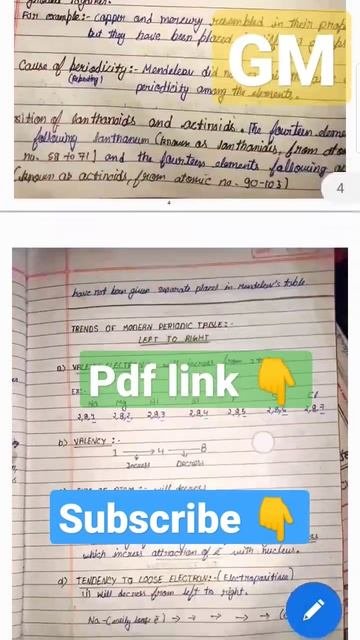 For example:- Copper and mercury resembled in their prop
but they have been placed
GM
Cause of periodicity:- Mendeleev did
(Repeating)
periodicity among the elements.
sition of lanthanoids and actinoids. The fourteen eleme
following lanthanum (known as lanthanides, from ato
no. 58 to 71) and the fourteen elements following ac
(known as actinoids, from atomic no. 90-103)
4
4
have not been given separate places in Mendeleev's table.
TRENDS OF MODERN PERIODIC TABLE:-
LEFT TO RIGHT
a)
Pdf link 👇
2,8,1 2,8,2 2,8,3 2,8,4 2,8,5 2,8,6
b) VALENCY :-
1 → 4 → 8
Increase Decrease
Subscribe 👇
which increase attraction of e⁻ with nucleus.
d) TENDENCY TO LOOSE ELECTRON:- (Electropositive)
It will decrease from left to right.
Na-(easily lose e⁻) → → → →